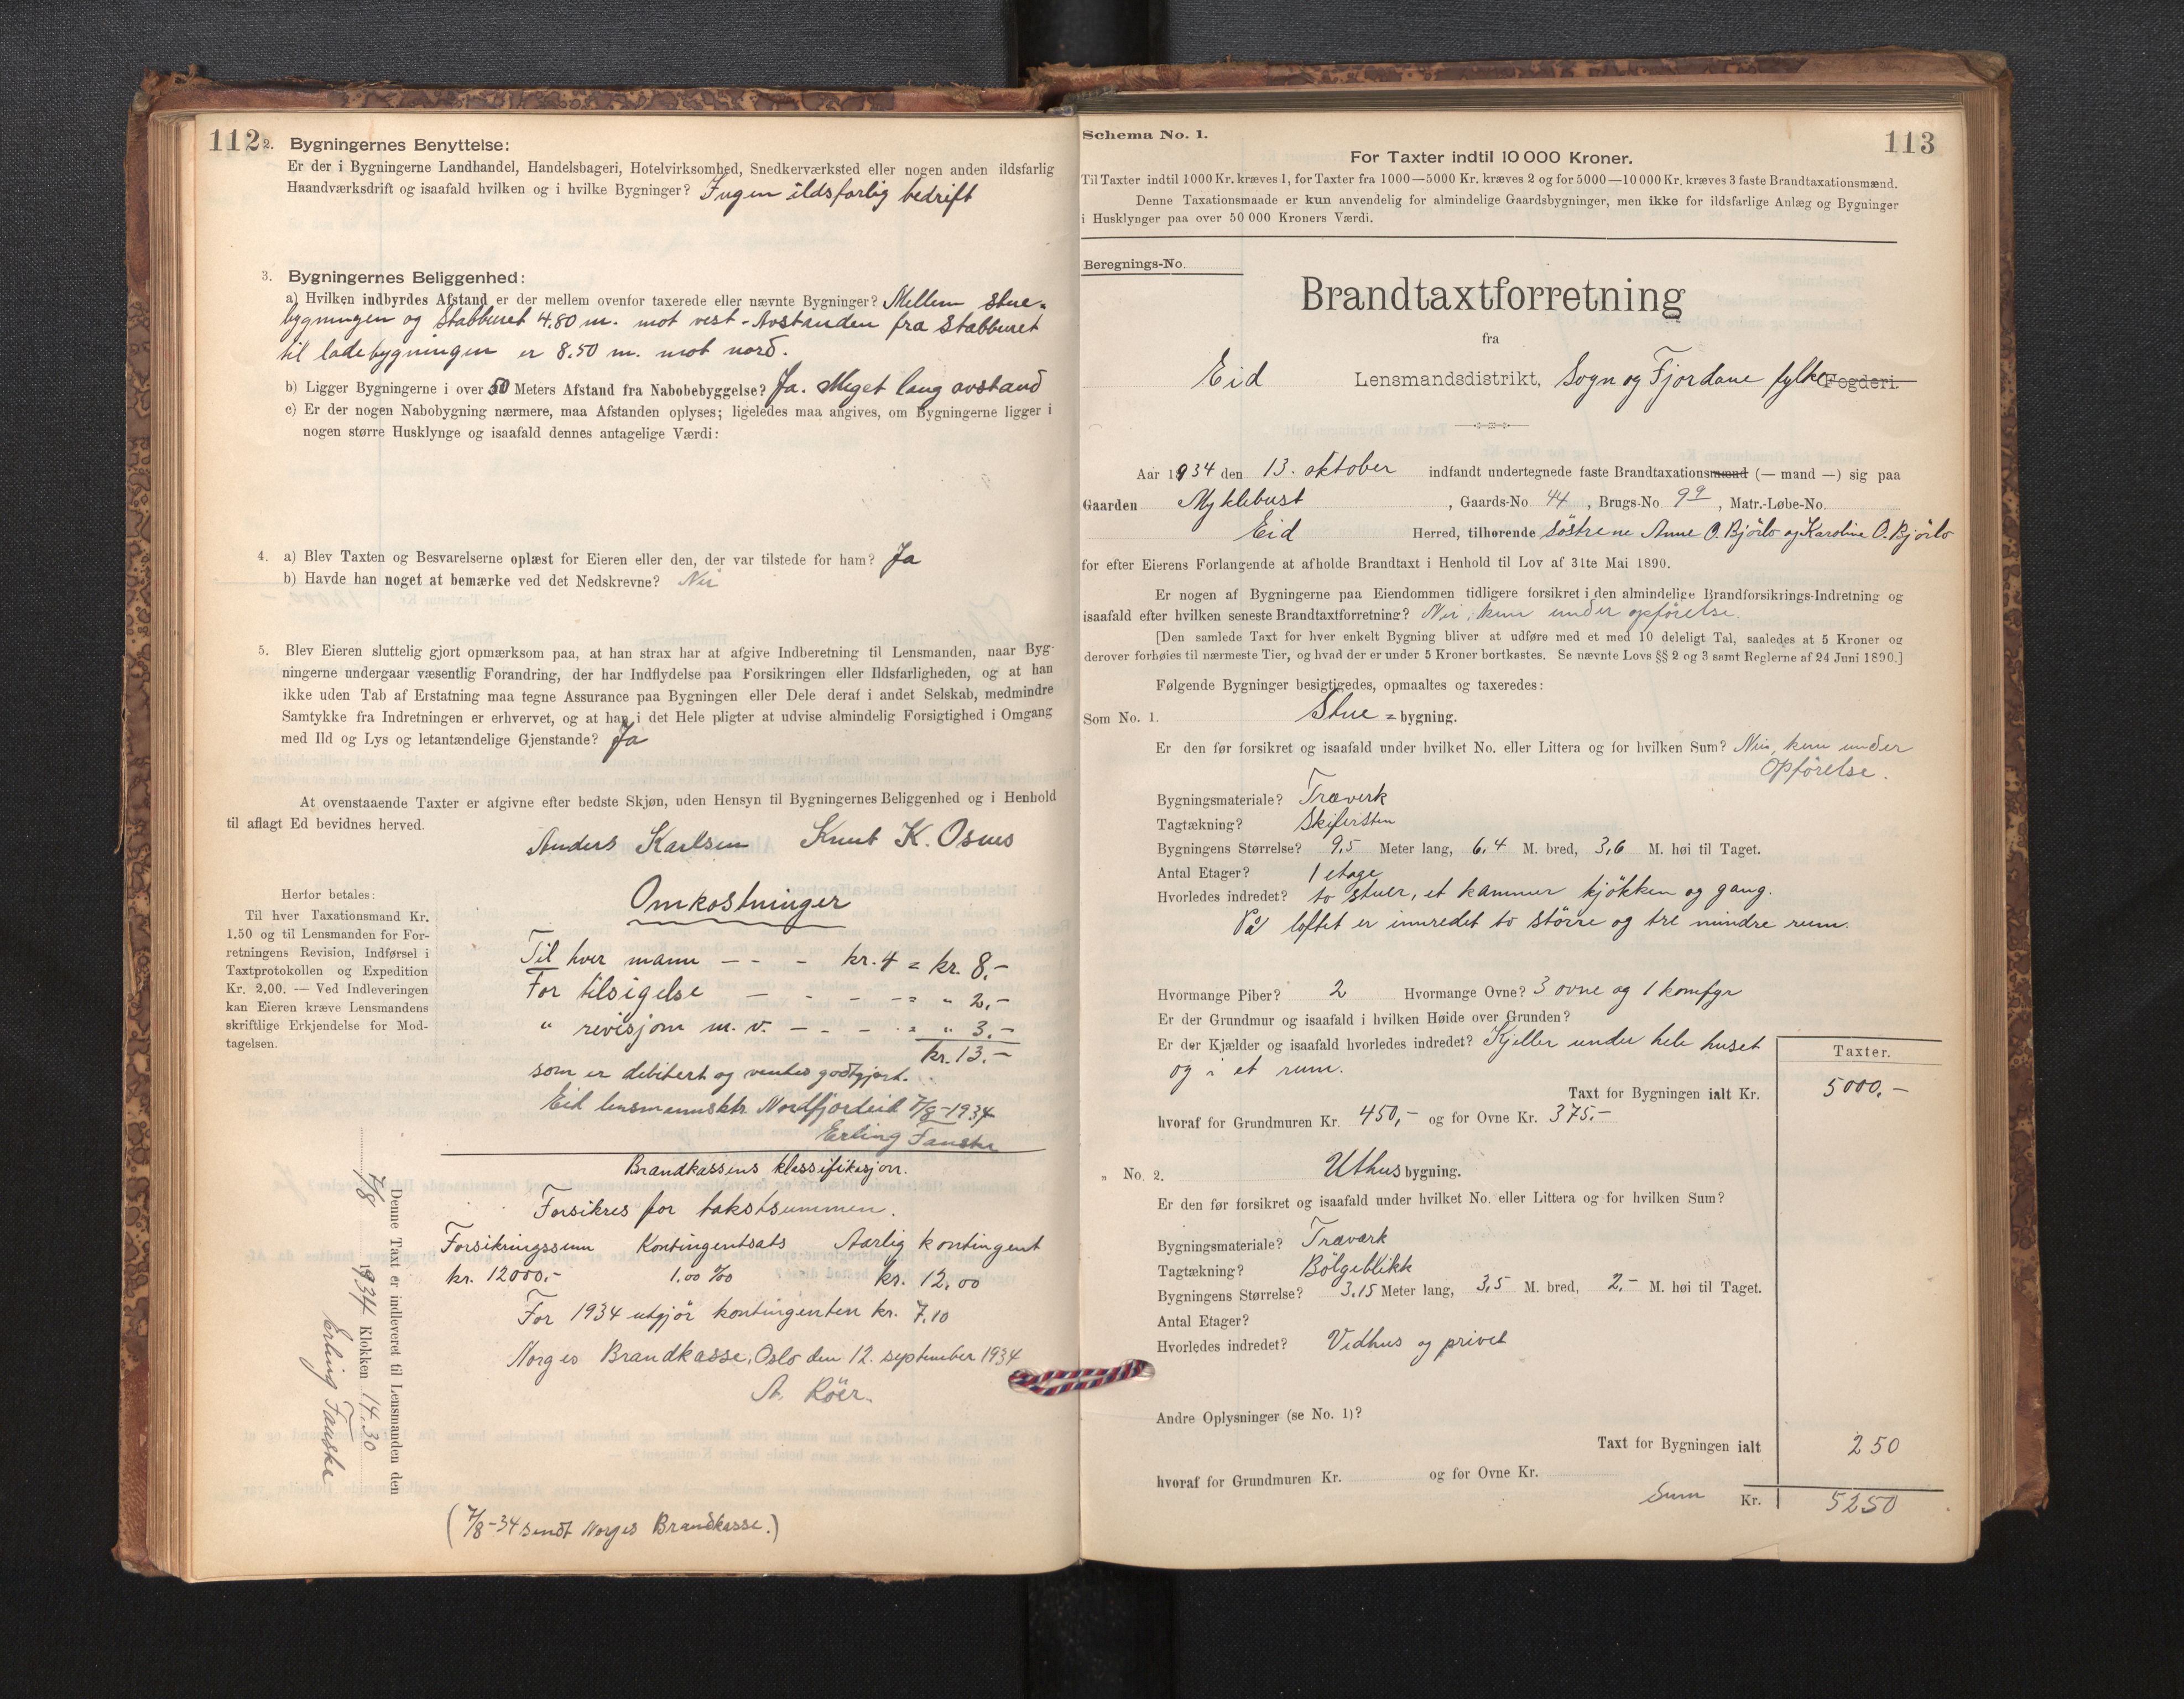 112
2. Bygningernes Benyttelse:
Er der i Bygningerne Landhandel, Handelsbageri, Hotelvirksomhed, Snedkerværksted eller nogen anden ildsfarlig
Haandværksdrift og isaafald hvilken og i hvilke Bygninger? Ingen ildsfarlig bedrift
3. Bygningernes Beliggenhed:
a) Hvilken indbyrdes Afstand er der mellem ovenfor taxerede eller nævnte Bygninger? Mellem stue-
bygningen og Stabburet 4.80 m. mot vest - Avstanden fra Stabburet
til ladebygningen er 8.50 m. mot nord.
b) Ligger Bygningerne i over 50 Meters Afstand fra Nabobebyggelse? Ja. Meget lang avstand
c) Er der nogen Nabobygning nærmere, maa Afstanden oplyses; ligeledes maa angives, om Bygningerne ligger i
nogen større Husklynge og isaafald dennes antagelige Værdi:
4. a) Blev Taxten og Besvarelserne oplæst for Eieren eller den, der var tilstede for ham? Ja
b) Havde han noget at bemærke ved det Nedskrevne? Nei
5. Blev Eieren sluttelig gjort opmærksom paa, at han strax har at afgive Indberetning til Lensmanden, naar Byg-
ningerne undergaar væsentlig Forandring, der har Indflydelse paa Forsikringen eller Ildsfarligheden, og at han
ikke uden Tab af Erstatning maa tegne Assurance paa Bygningen eller Dele deraf i andet Selskab, medmindre
Samtykke fra Indretningen er erhvervet, og at han i det Hele pligter at udvise almindelig Forsigtighed i Omgang
med Ild og Lys og letantændelige Gjenstande? Ja
At ovenstaaende Taxter er afgivne efter bedste Skjøn, uden Hensyn til Bygningernes Beliggenhed og i Henhold
til aflagt Ed bevidnes herved.
Anders Karlsen Knut K. Osnes
Herfor betales:
Til hver Taxationsmand Kr.
1.50 og til Lensmanden for For-
retningens Revision, Indførsel i
Taxtprotokollen og Expedition
Kr. 2,00. — Ved Indleveringen
kan Eieren kræve Lensmandens
skriftlige Erkjendelse for Mod-
tagelsen.
Omkostninger
Til hver mann - - - kr. 4 = kr. 8.-
For tilsigelse - - - - = " 2,-
" revisjon m. v. - - - = " 3.-
kr. 13.-
som er debitert og ventes godtgjort.
Eid lensmannsktr. Nordfjordeid 7/8-1934
Erling Fauske
Brandkassens klassifikasjon.
Forsikres for takstsummen.
Forsikringssum Kontingentsats Aarlig kontingent
kr. 12000.- 1.00 ‰ kr. 12,00
For 1934 utgjör kontingenten kr. 7.10
Norges Brandkasse, Oslo den 12. september 1934
A. Röer.
Denne Taxt er indleveret til Lensmanden den
7/8 1934 Klokken 14.30
Erling Fauske
(7/8-34 sendt Norges Brandkasse.)
Schema No. 1.
113
For Taxter indtil 10 000 Kroner.
Til Taxter indtil 1000 Kr. kræves 1, for Taxter fra 1000—5000 Kr. kræves 2 og for 5000—10000 Kr. kræves 3 faste Brandtaxationsmænd.
Denne Taxationsmaade er kun anvendelig for almindelige Gaardsbygninger, men ikke for ildsfarlige Anlæg og Bygninger
i Husklynger paa over 50 000 Kroners Værdi.
Beregnings-No.
Brandtaxtforretning
fra
Eid Lensmandsdistrikt, Sogn og Fjordane fylke Fogderi.
Aar 1934 den 13. oktober indfandt undertegnede faste Brandtaxationsmænd (— mand —) sig paa
Gaarden Myklebust, Gaards-No 44, Brugs-No 99, Matr.-Løbe-No.
Eid Herred, tilhørende söstrene Anne O. Bjørlo og Karoline O. Bjørlo
for efter Eierens Forlangende at afholde Brandtaxt i Henhold til Lov af 31te Mai 1890.
Er nogen af Bygningerne paa Eiendommen tidligere forsikret i den almindelige Brandforsikrings-Indretning og
isaafald efter hvilken seneste Brandtaxtforretning? Nei, kun under opförelse.
[Den samlede Taxt for hver enkelt Bygning bliver at udføre med et med 10 deleligt Tal, saaledes at 5 Kroner og
derover forhøies til nærmeste Tier, og hvad der er under 5 Kroner bortkastes. Se nævnte Lovs §§ 2 og 3 samt Reglerne af 24 Juni 1890.]
Følgende Bygninger besigtigedes, opmaaltes og taxeredes:
Som No. 1. Stue = bygning.
Er den før forsikret og isaafald under hvilket No. eller Littera og for hvilken Sum? Nei, kun under
Opförelse.
Bygningsmateriale? Træverk
Tagtækning? Skifersten
Bygningens Størrelse? 9,5 Meter lang, 6,4 M. bred, 3,6 M. høi til Taget.
Antal Etager? 1 etage
Hvorledes indredet? to stuer, et kammer kjökken og gang.
På loftet er innredet to större og tre mindre rum.
Hvormange Piber? 2 Hvormange Ovne? 3 ovne og 1 komfyr
Er der Grundmur og isaafald i hvilken Høide over Grunden?
Er der Kjælder og isaafald hvorledes indredet? Kjeller under hele huset
og i et rum.
Taxter.
Taxt for Bygningen ialt Kr. 5000,-
hvoraf for Grundmuren Kr. 450,- og for Ovne Kr. 375.-
„ No. 2. Uthus bygning.
Er den før forsikret og isaafald under hvilket No. eller Littera og for hvilken Sum?
Bygningsmateriale? Træverk
Tagtækning? Bölgeblikk
Bygningens Størrelse? 3,15 Meter lang, 3,5 M. bred, 2,- M. høi til Taget.
Antal Etager?
Hvorledes indredet? Vedhus og privet
Andre Oplysninger (se No. 1)?
Taxt for Bygningen ialt 250
hvoraf for Grundmuren Kr. og for Ovne Kr.
Sum Kr. 5250